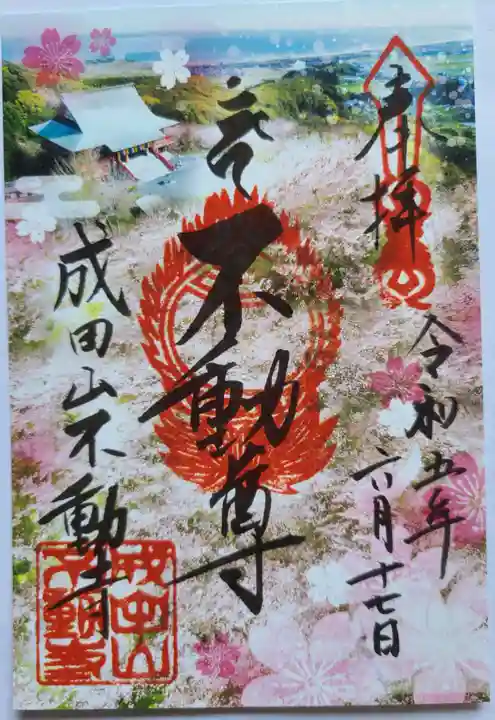 奉拝
令和五年
六月十七日
不動尊
成田山不動寺
成田山
不動寺